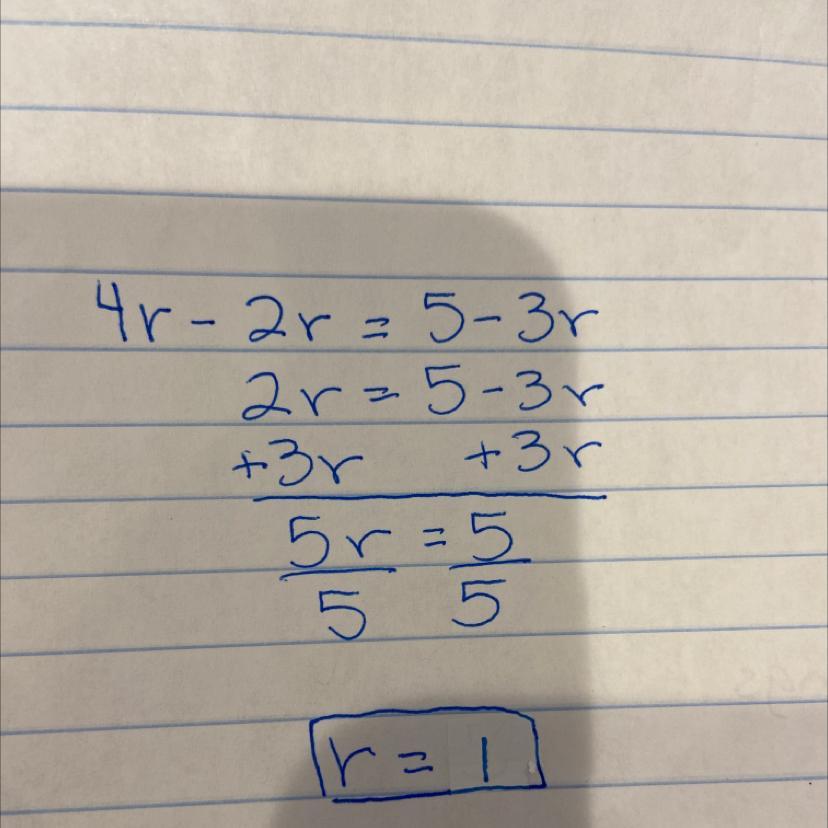 4r - 2r = 5 - 3r
2r = 5 - 3r
+3r +3r
5r = 5
5 5
r = 1